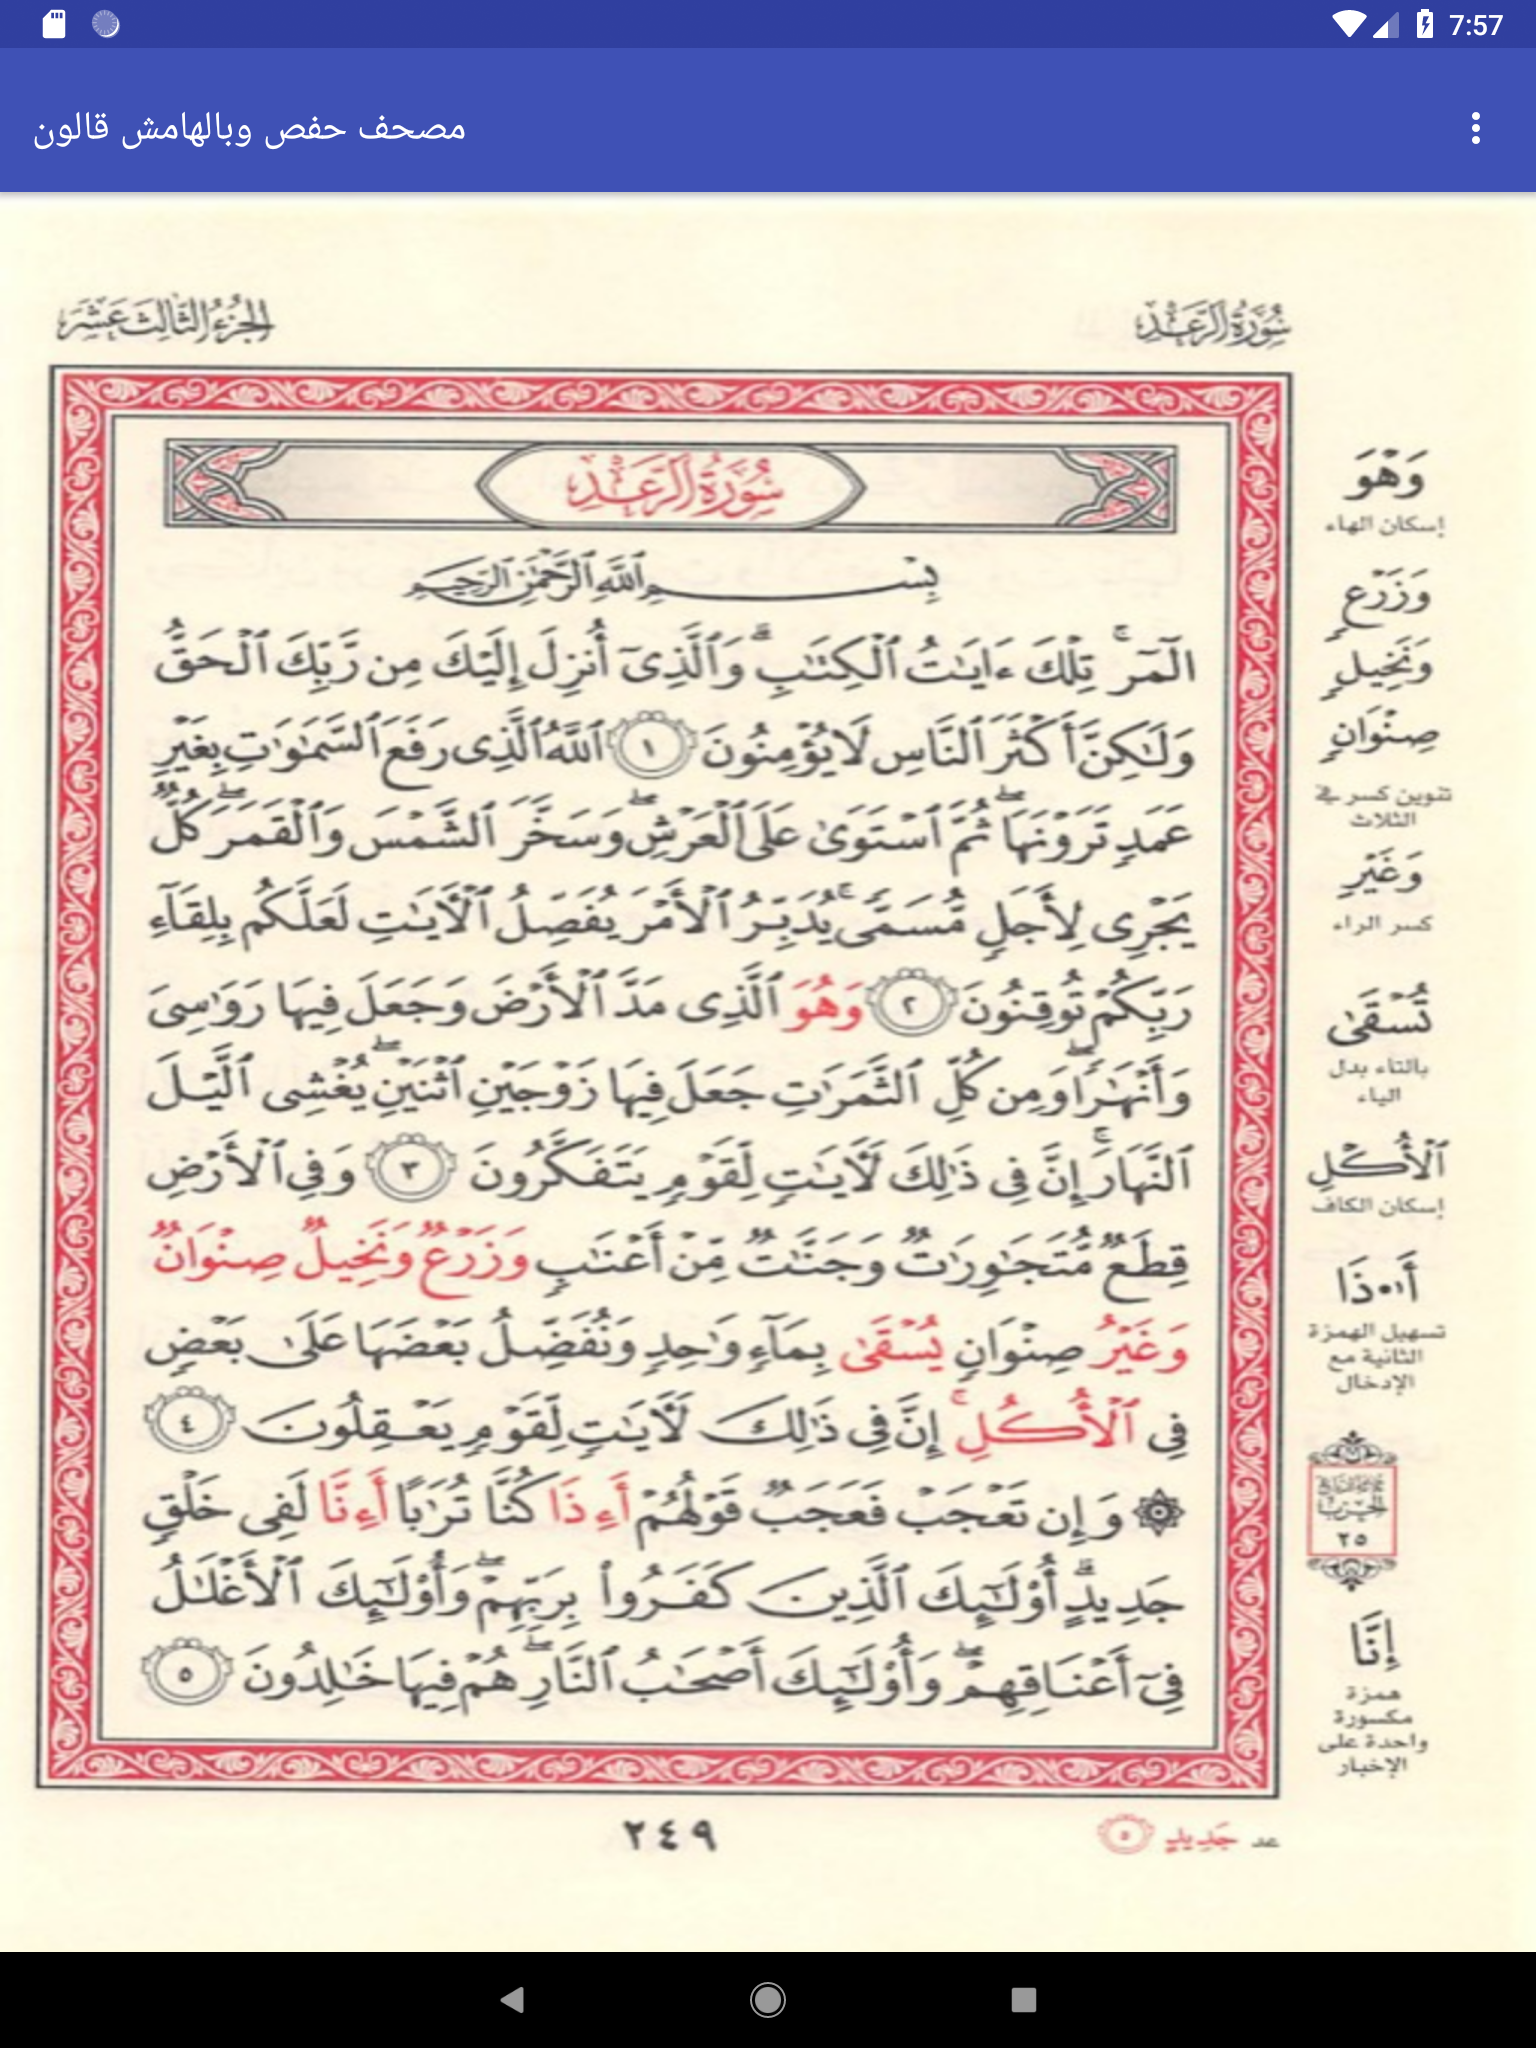 7:57
مصحف حفص وبالهامش قالون
سُورَةُ الرَّعْدِ
الجُزْءُ الثَّالِثَ عَشَرَ
سُورَةُ الرَّعْدِ
بِسْمِ ٱللَّهِ ٱلرَّحْمَٰنِ ٱلرَّحِيمِ
الٓمٓرۚ تِلْكَ ءَايَٰتُ ٱلْكِتَٰبِۗ وَٱلَّذِىٓ أُنزِلَ إِلَيْكَ مِن رَّبِّكَ ٱلْحَقُّ
وَلَٰكِنَّ أَكْثَرَ ٱلنَّاسِ لَا يُؤْمِنُونَ ١ ٱللَّهُ ٱلَّذِى رَفَعَ ٱلسَّمَٰوَٰتِ بِغَيْرِ
عَمَدٍ تَرَوْنَهَاۖ ثُمَّ ٱسْتَوَىٰ عَلَى ٱلْعَرْشِۖ وَسَخَّرَ ٱلشَّمْسَ وَٱلْقَمَرَۖ كُلٌّ
يَجْرِى لِأَجَلٍ مُّسَمًّىۚ يُدَبِّرُ ٱلْأَمْرَ يُفَصِّلُ ٱلْءَايَٰتِ لَعَلَّكُم بِلِقَآءِ
رَبِّكُمْ تُوقِنُونَ ٢ وَهُوَ ٱلَّذِى مَدَّ ٱلْأَرْضَ وَجَعَلَ فِيهَا رَوَٰسِىَ
وَأَنْهَٰرًاۖ وَمِن كُلِّ ٱلثَّمَرَٰتِ جَعَلَ فِيهَا زَوْجَيْنِ ٱثْنَيْنِۖ يُغْشِى ٱلَّيْلَ
ٱلنَّهَارَۚ إِنَّ فِى ذَٰلِكَ لَءَايَٰتٍ لِّقَوْمٍ يَتَفَكَّرُونَ ٣ وَفِى ٱلْأَرْضِ
قِطَعٌ مُّتَجَٰوِرَٰتٌ وَجَنَّٰتٌ مِّنْ أَعْنَٰبٍ وَزَرْعٌ وَنَخِيلٌ صِنْوَانٌ
وَغَيْرُ صِنْوَانٍ يُسْقَىٰ بِمَآءٍ وَٰحِدٍ وَنُفَضِّلُ بَعْضَهَا عَلَىٰ بَعْضٍ
فِى ٱلْأُكُلِۚ إِنَّ فِى ذَٰلِكَ لَءَايَٰتٍ لِّقَوْمٍ يَعْقِلُونَ ٤
۞ وَإِن تَعْجَبْ فَعَجَبٌ قَوْلُهُمْ أَءِذَا كُنَّا تُرَٰبًا أَءِنَّا لَفِى خَلْقٍ
جَدِيدٍۗ أُو۟لَٰٓئِكَ ٱلَّذِينَ كَفَرُوا۟ بِرَبِّهِمْۖ وَأُو۟لَٰٓئِكَ ٱلْأَغْلَٰلُ
فِىٓ أَعْنَاقِهِمْۖ وَأُو۟لَٰٓئِكَ أَصْحَٰبُ ٱلنَّارِۖ هُمْ فِيهَا خَٰلِدُونَ ٥
وَهْوَ
إسكان الهاء
وَزَرْعٍ
وَنَخِيلٍ
صِنْوَانٍ
تنوين كسر في
الثلاث
وَغَيْرِ
كسر الراء
تُسْقَىٰ
بالتاء بدل
الياء
ٱلْأُكْلِ
إسكان الكاف
أَا۬ذَا
تسهيل الهمزة
الثانية مع
الإدخال
الحزب
٢٥
إِنَّا
همزة
مكسورة
واحدة على
الإخبار
عد جَدِيدٍ ٥
٢٤٩